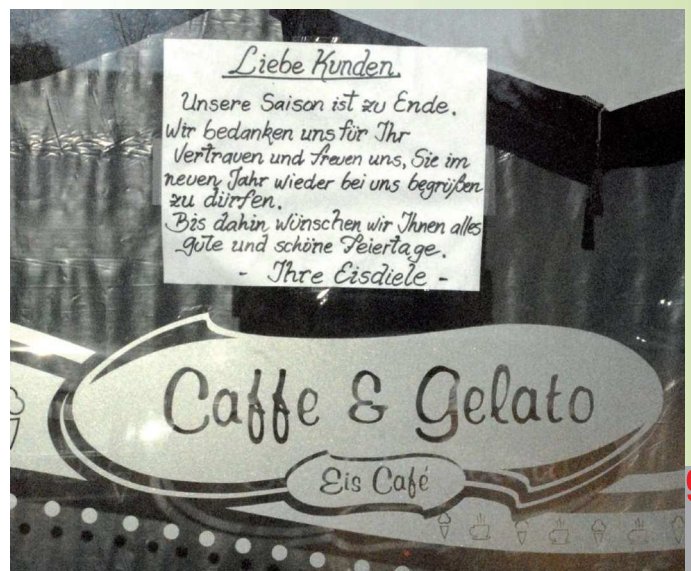 Liebe Kunden,
Unsere Saison ist zu Ende.
Wir bedanken uns für Ihr
Vertrauen und freuen uns, Sie im
neuen Jahr wieder bei uns begrüßen
zu dürfen.
Bis dahin wünschen wir Ihnen alles
gute und schöne Feiertage.
- Ihre Eisdiele -
Caffe & Gelato
Eis Café